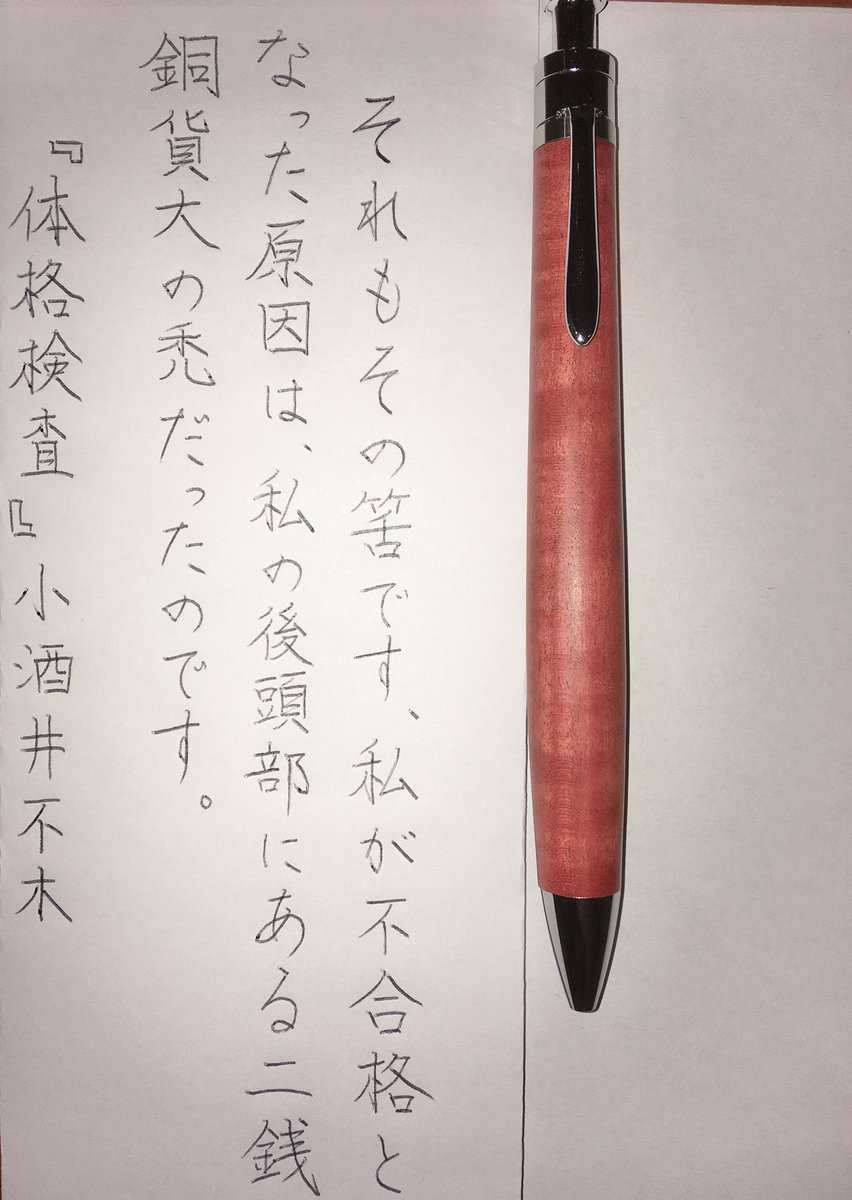 それもその筈です、私が不合格と
なった原因は、私の後頭部にある二銭
銅貨大の禿だったのです。
『体格検査』小酒井不木